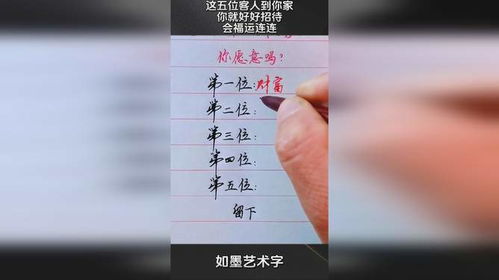 这五位客人到你家
你就好好招待
会福运连连
你愿意吗?
第一位:财富
第二位:
第三位:
第四位:
第五位:
留下
如墨艺术字